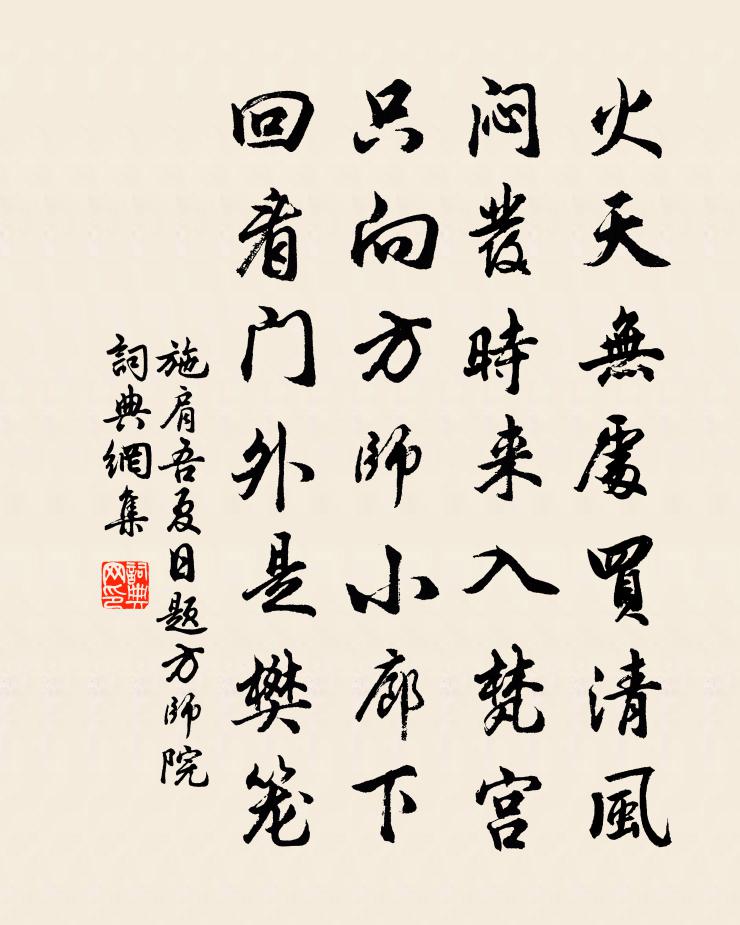 火天無處買清風
闷發時来入梵宫
只向方師小廊下
回看门外是樊笼
施肩吾夏日題方師院
詞典網集
詞典
网印